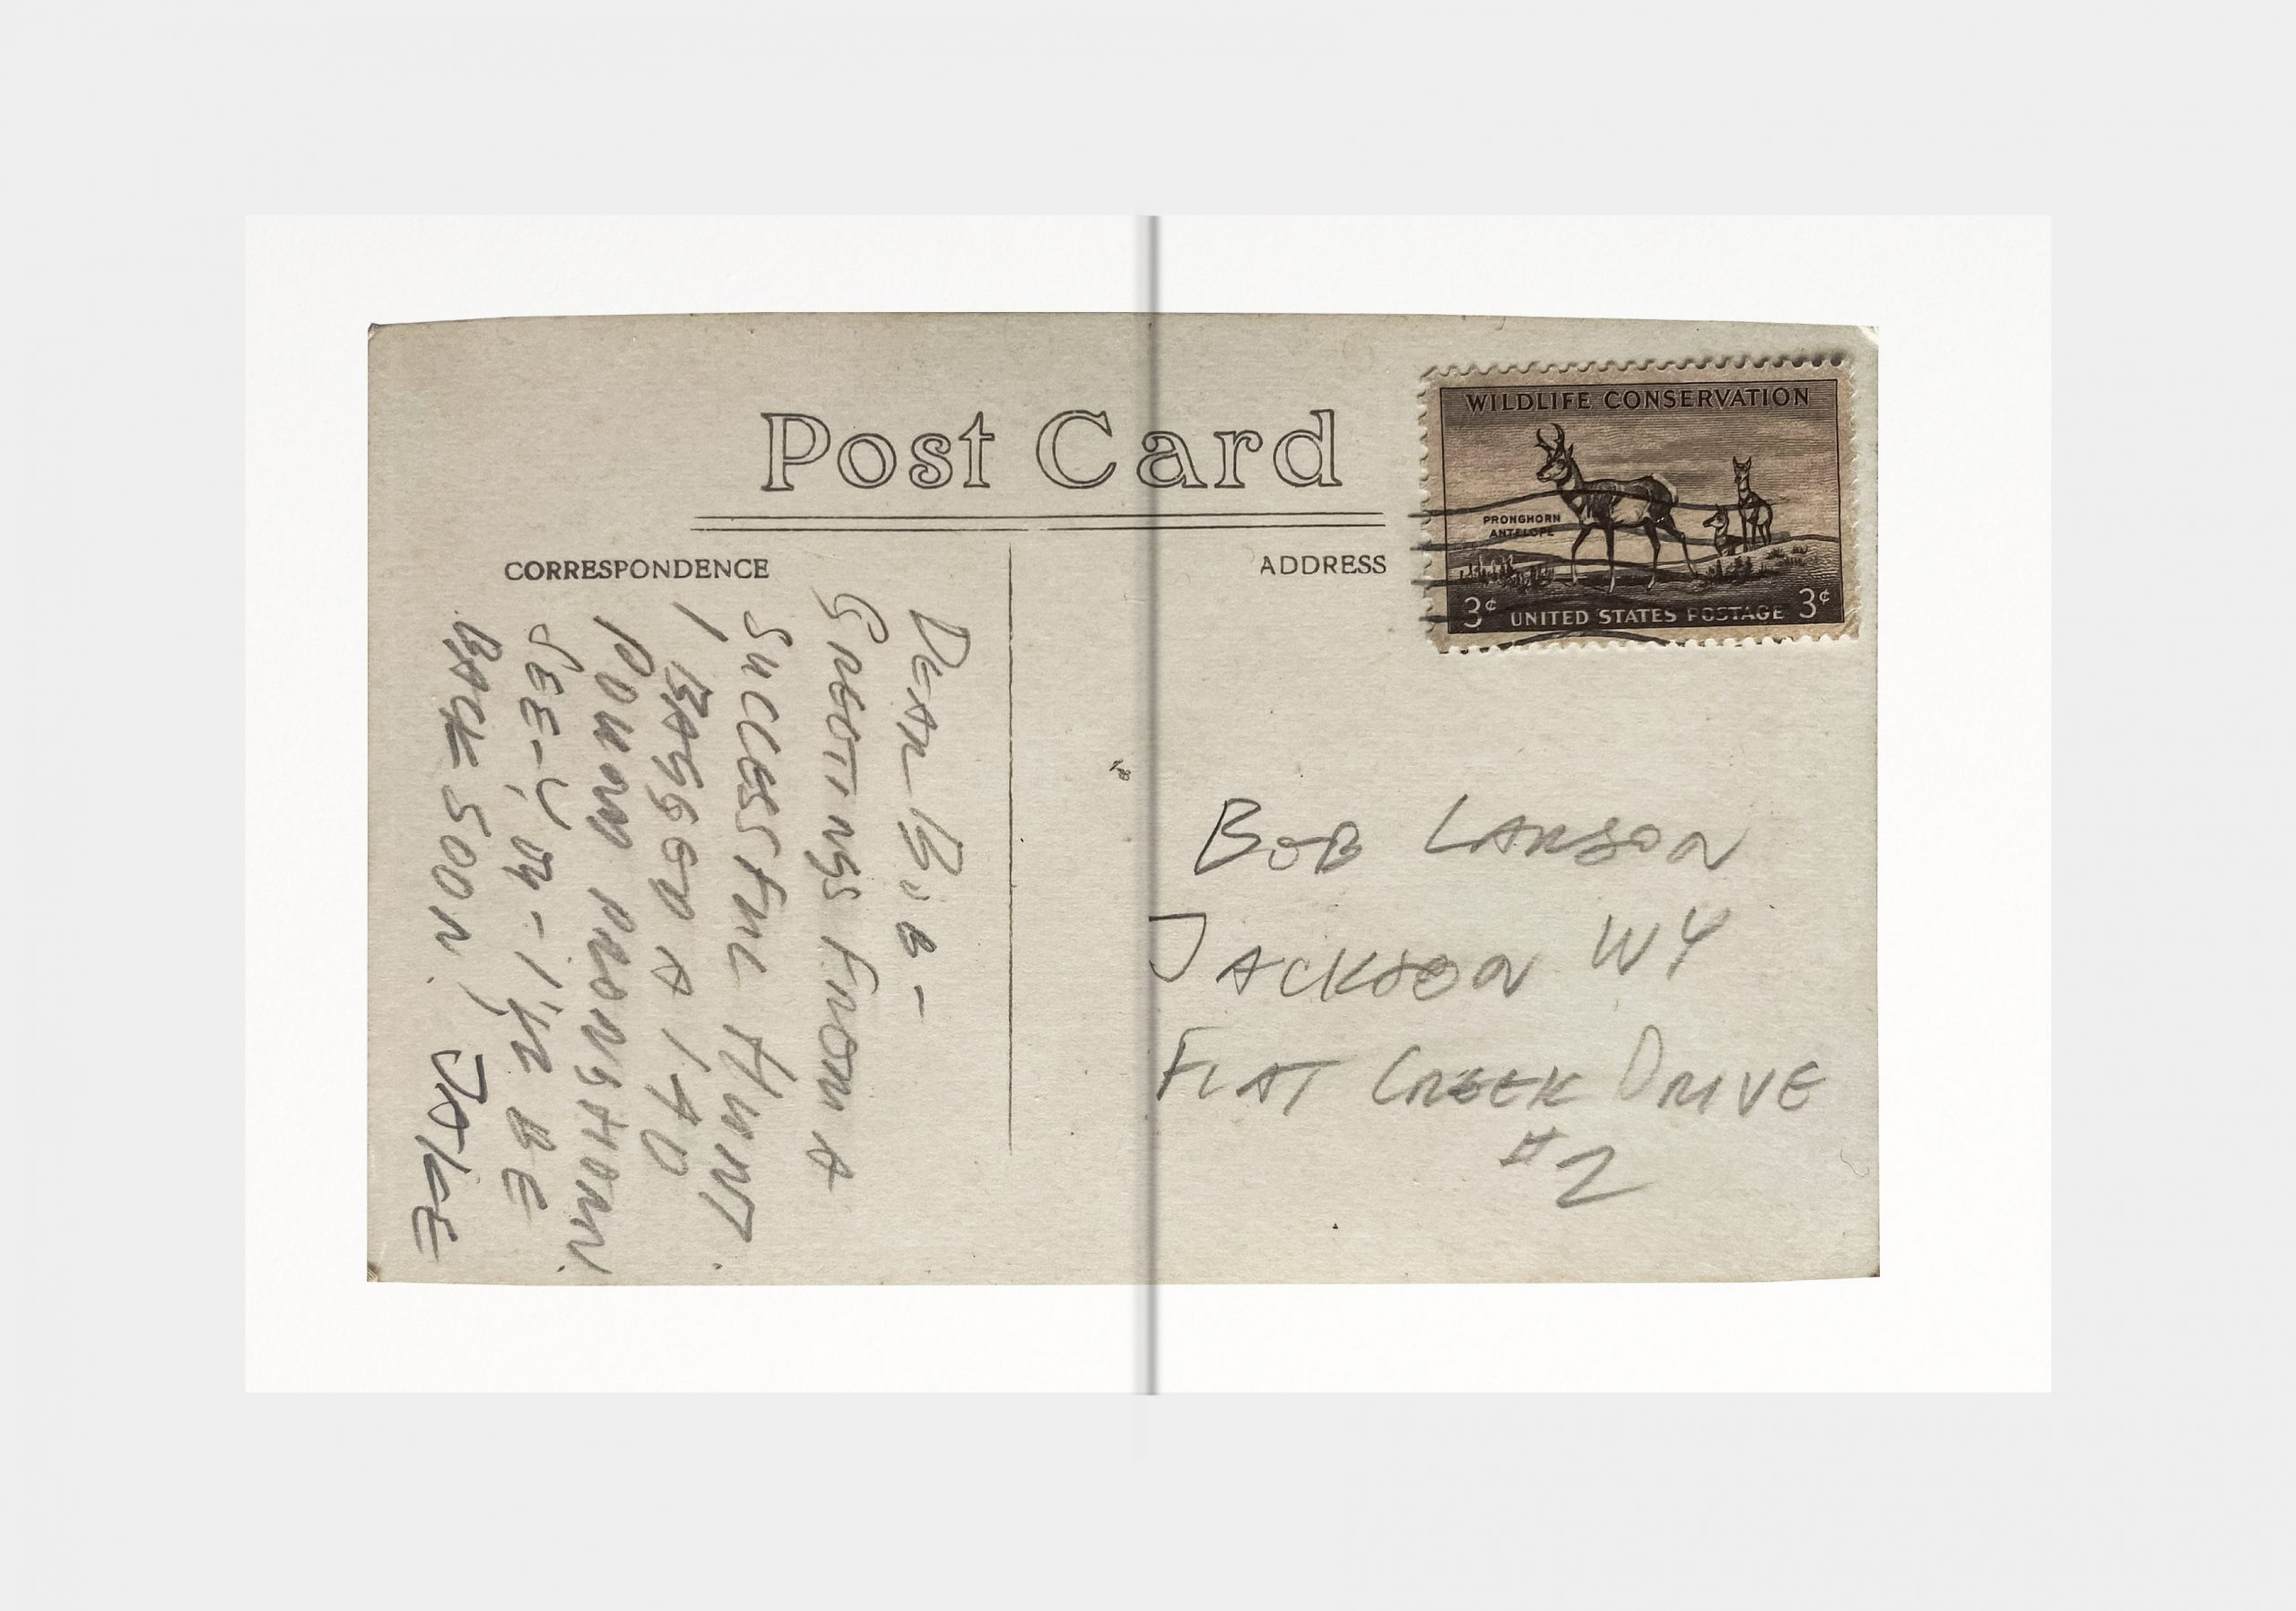 Post Card
CORRESPONDENCE
ADDRESS
WILDLIFE CONSERVATION
PRONGHORN
ANTELOPE
3¢ UNITED STATES POSTAGE 3¢
DEAR BOB –
GREETINGS FROM A
SUCCESSFUL HUNT.
I BAGGED A 140
POUND PRONGHORN.
SEE-YA-I'LL BE
BACK SOON, JAKE
BOB LARSON
JACKSON WY
FLAT CREEK DRIVE
#2